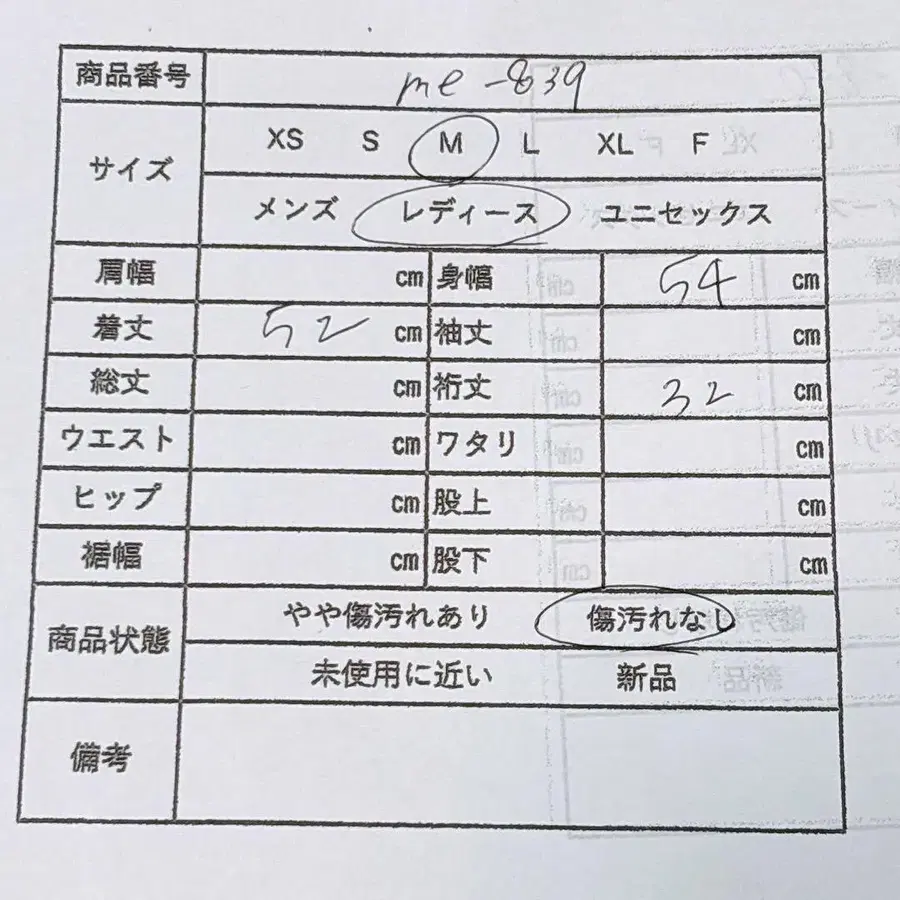 商品番号 me-839
サイズ XS S M L XL F
メンズ レディース ユニセックス
肩幅 cm 身幅 54 cm
着丈 52 cm 袖丈 cm
総丈 cm 裄丈 32 cm
ウエスト cm ワタリ cm
ヒップ cm 股上 cm
裾幅 cm 股下 cm
商品状態 やや傷汚れあり 傷汚れなし
未使用に近い 新品
備考